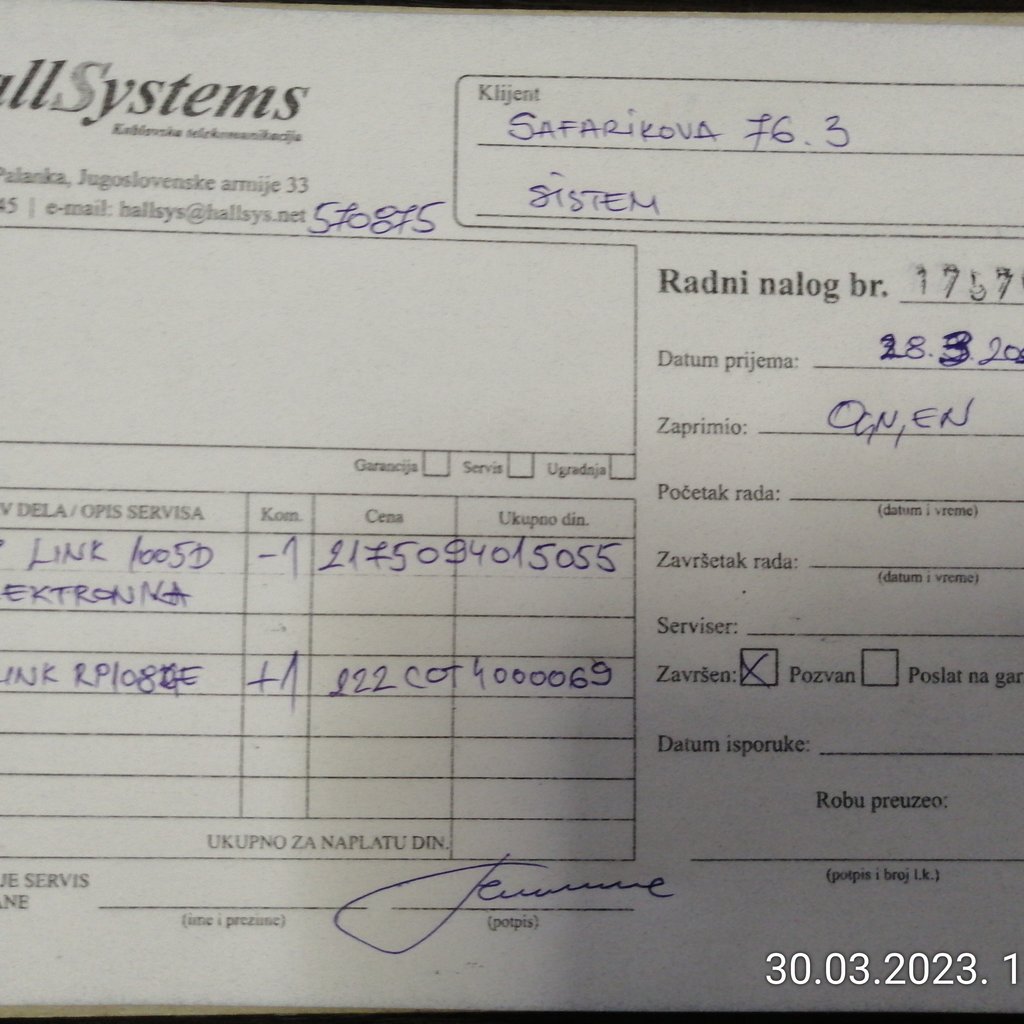 allSystems
Kablovska telekomunikacija
Palanka, Jugoslovenske armije 33
45 | e-mail: hallsys@hallsys.net 570875
Klijent
SAFARIKOVA 76.3
SISTEM
Radni nalog br.
Datum prijema: 28.3.20
Zaprimio: OGNJEN
Početak rada:
(datum i vreme)
Završetak rada:
(datum i vreme)
Serviser:
Završen: X Pozvan Poslat na gar
Datum isporuke:
Robu preuzeo:
(potpis i broj l.k.)
Garancija Servis Ugradnja
V DELA / OPIS SERVISA Kom. Cena Ukupno din.
P LINK 1005D -1 2175094015055
EKTRONIKA
INK RP108GE +1 222COT4000069
UKUPNO ZA NAPLATU DIN.
JE SERVIS
ANE
(ime i prezime) (potpis)
30.03.2023. 1